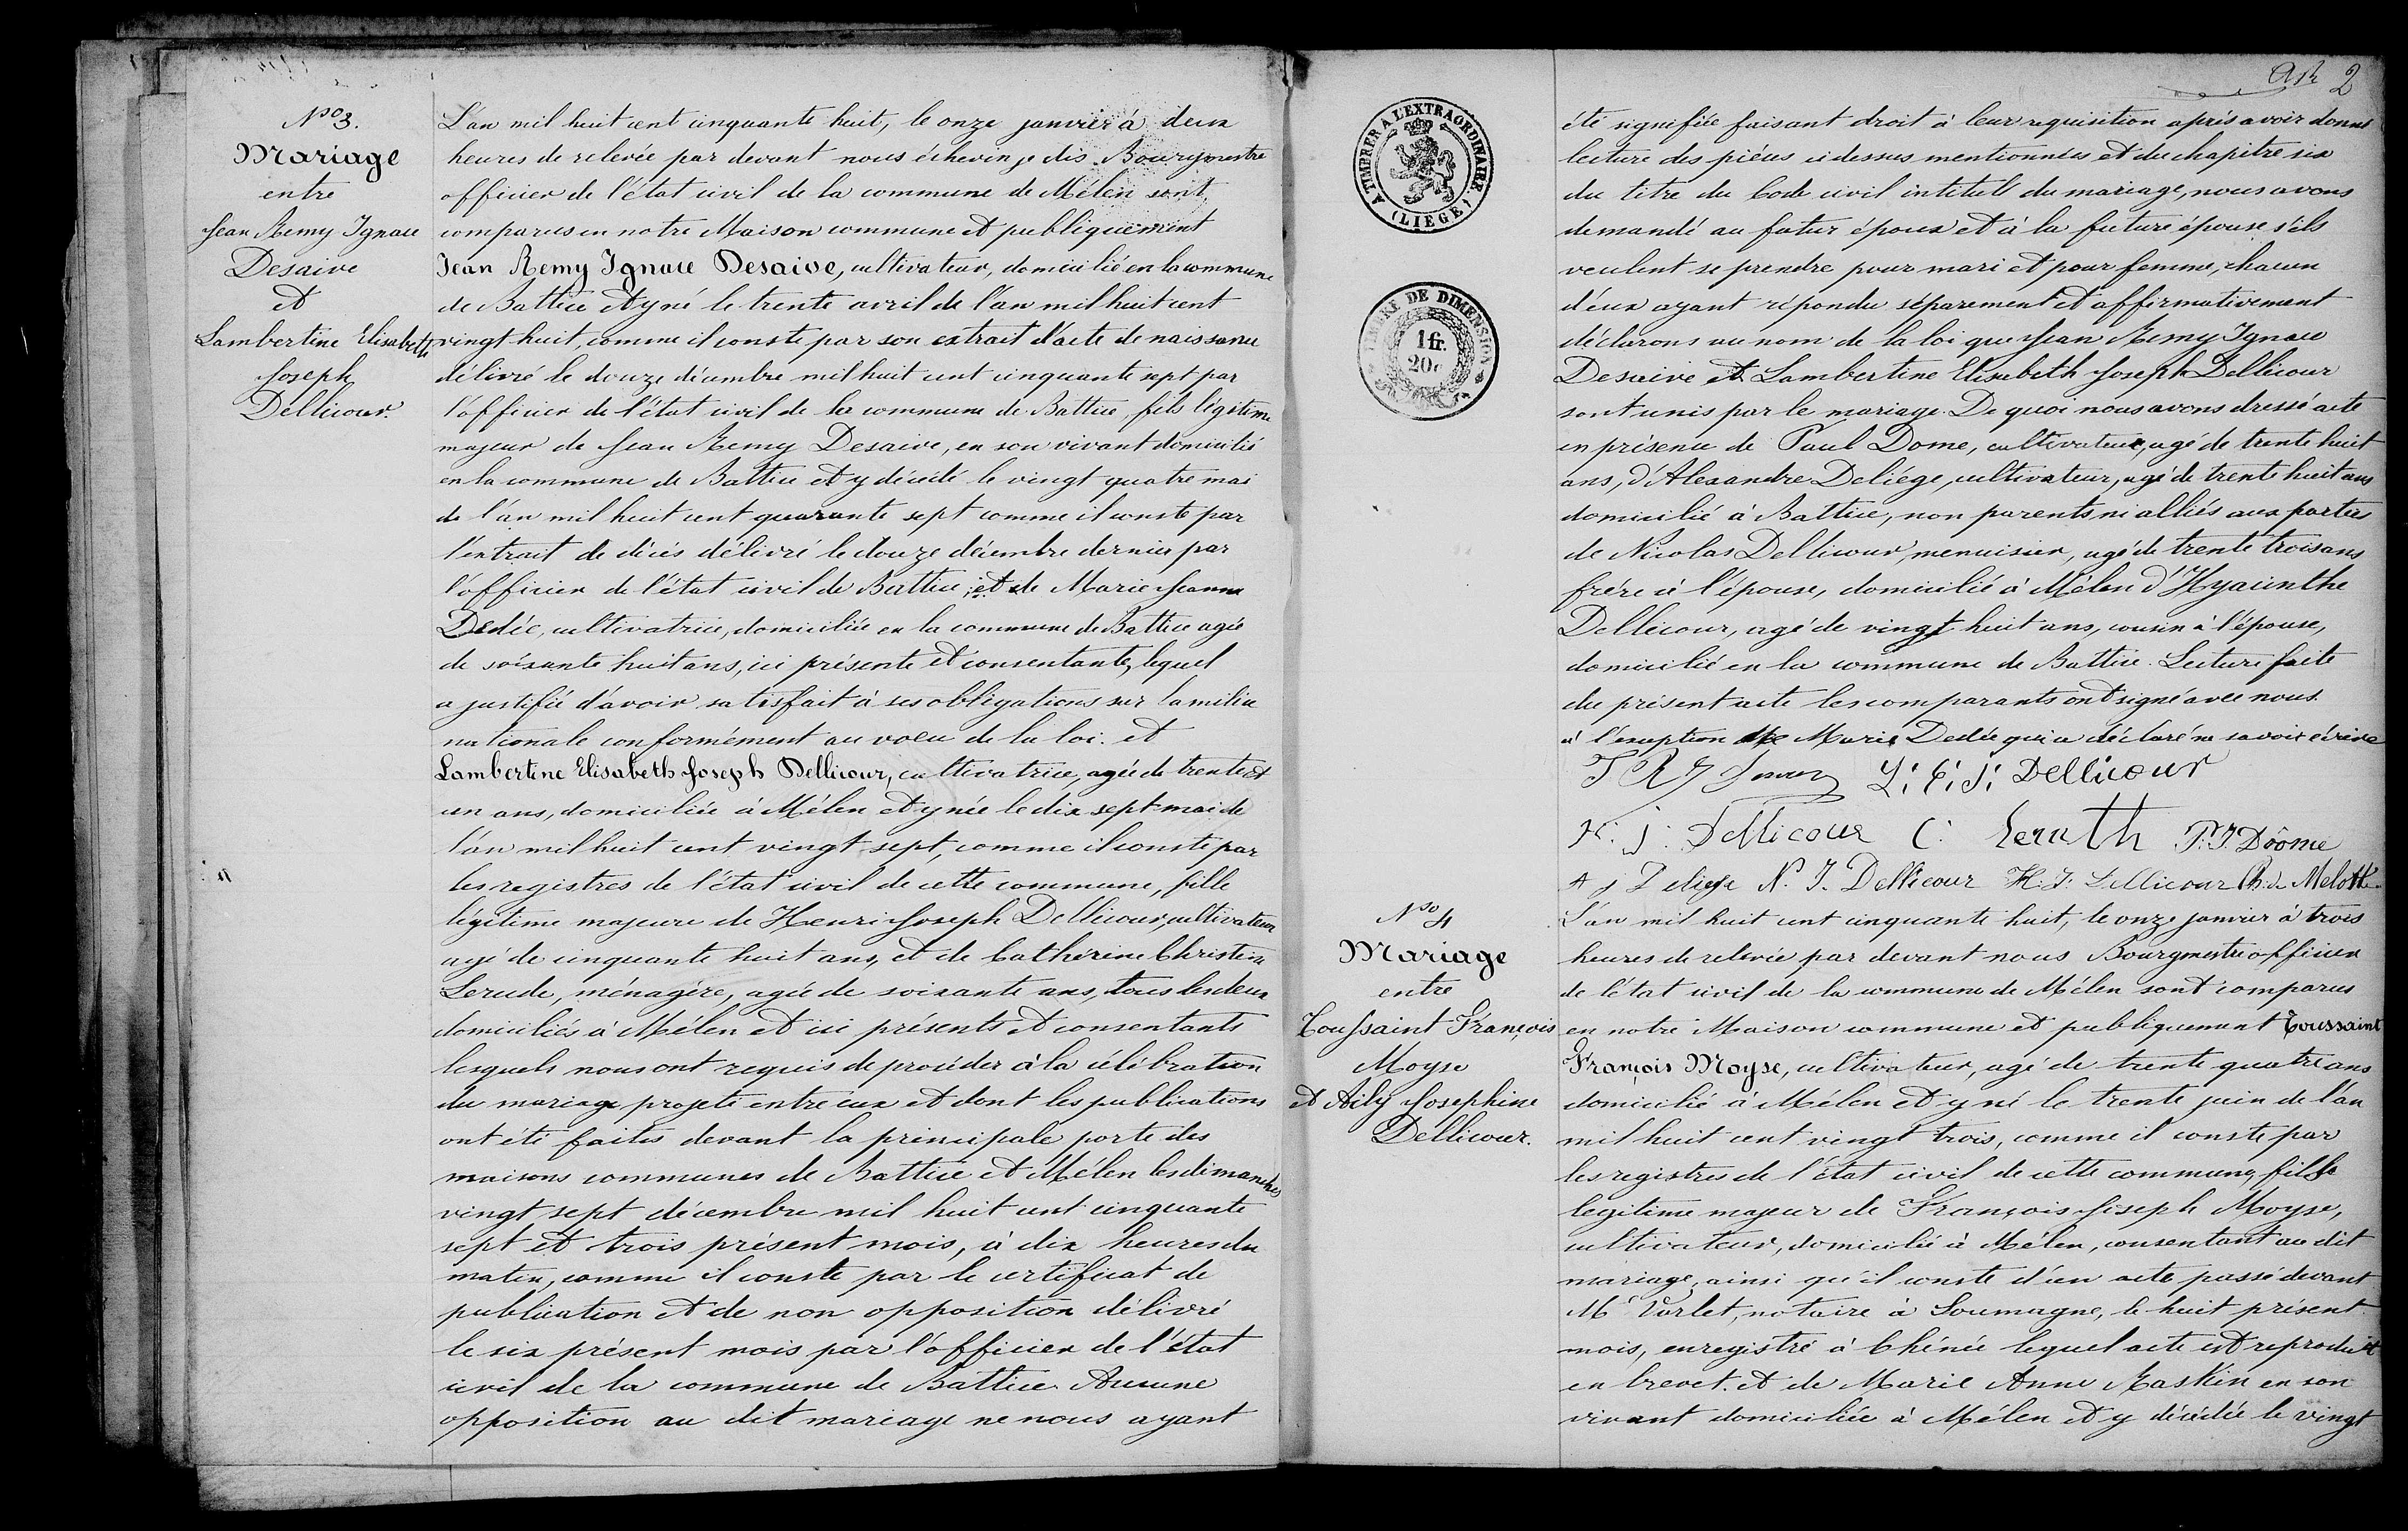 N° 3.
Mariage
entre
Jean Remy Ignace
Desaive
et
Lambertine Elisabeth
Joseph
Dellicour.
L'an mil huit cent cinquante huit, le onze janvier à deux
heures de relevée par devant nous échevin je dis Bourgmestre
officier de l'état civil de la commune de Mélen sont
comparus en notre Maison commune et publiquement
Jean Remy Ignace Desaive, cultivateur, domicilié en la commune
de Battice et y né le trente avril de l'an mil huit cent
vingt huit, comme il conste par son extrait d'acte de naissance
délivré le douze décembre mil huit cent cinquante sept par
l'officier de l'état civil de la commune de Battice, fils légitime
majeur de Jean Remy Desaive, en son vivant domicilié
en la commune de Battice et y décédé le vingt quatre mai
de l'an mil huit cent quarante sept comme il conste par
l'extrait de décès délivré le douze décembre dernier par
l'officier de l'état civil de Battice; et de Marie Jeanne
Dedée, cultivatrice, domiciliée en la commune de Battice agée
de soixante huit ans, ici présente et consentante, lequel
a justifié d'avoir satisfait à ses obligations sur la milice
nationale conformément au voeu de la loi. et
Lambertine Elisabeth Joseph Dellicour, cultivatrice, agée de trente et
un ans, domiciliée à Mélen et y née le dix sept mai de
l'an mil huit cent vingt sept, comme il conste par
les registres de l'état civil de cette commune, fille
légitime majeure de Henri Joseph Dellicour, cultivateur
agé de cinquante huit ans, et de Cathérine Christine
Lerude, ménagère, agée de soixante ans, tous les deux
domiciliés à Mélen et ici présents et consentants
lesquels nous ont requis de procéder à la célébration
du mariage projeté entre eux et dont les publications
ont été faites devant la principale porte des
maisons communes de Battice et Mélen les dimanches
vingt sept décembre mil huit cent cinquante
sept et trois présent mois, à dix heures du
matin, comme il conste par le certificat de
publication et de non opposition délivré
le six présent mois par l'officier de l'état
civil de la commune de Battice. Aucune
opposition au dit mariage ne nous ayant
2
A TIMBRER A L'EXTRAORDINAIRE
(LIEGE)
TIMBRE DE DIMENSION
1 fr.
20c
été signifiée faisant droit à leur requisition après avoir donné
lecture des pièces ci dessus mentionnées et du chapitre six
du titre du Code civil intitulé du mariage, nous avons
demandé au futur époux et à la future épouse s'ils
veulent se prendre pour mari et pour femme, chacun
d'eux ayant répondu séparement et affirmativement
déclarons au nom de la loi que Jean Remy Ignace
Desaive et Lambertine Elisabeth Joseph Dellicour
sont unis par le mariage. De quoi nous avons dressé acte
en présence de Paul Dome, cultivateur, agé de trente huit
ans, d'Alexandre Deliége, cultivateur, agé de trente huit ans
domicilié à Battice, non parents ni alliés aux parties
de Nicolas Dellicour, menuisier, agé de trente trois ans
frère à l'épouse, domicilié à Mélen d'Hyacinthe
Dellicour, agé de vingt huit ans, cousin à l'épouse,
domicilié en la commune de Battice. Lecture faite
du présent acte les comparants ont signé avec nous
à l'exception de Marie Dedée qui a déclaré ne savoir écrire
L: E: J: Dellicour
H: J: Dellicour C: Leruth P: J: Dôome
A J Deliege N. J. Dellicour H: J: Dellicour Ch: de Melotte
N° 4
Mariage
entre
Toussaint François
Moyse
et Aily Josephine
Dellicour.
L'an mil huit cent cinquante huit, le onze janvier à trois
heures de relevée par devant nous Bourgmestre officier
de l'état civil de la commune de Mélen sont comparus
en notre Maison commune et publiquement Toussaint
François Moyse, cultivateur, agé de trente quatre ans
domicilié à Mélen et y né le trente juin de l'an
mil huit cent vingt trois, comme il conste par
les registres de l'état civil de cette commune, fils
legitime majeur de François Joseph Moyse,
cultivateur, domicilié à Mélen, consentant au dit
mariage, ainsi qu'il conste d'un acte passé devant
Mr Varlet, notaire à Soumagne, le huit présent
mois, enregistré à Chênée lequel acte est reproduit
en brevet. et de Marie Anne Raskin en son
vivant domiciliée à Mélen et y décédée le vingt